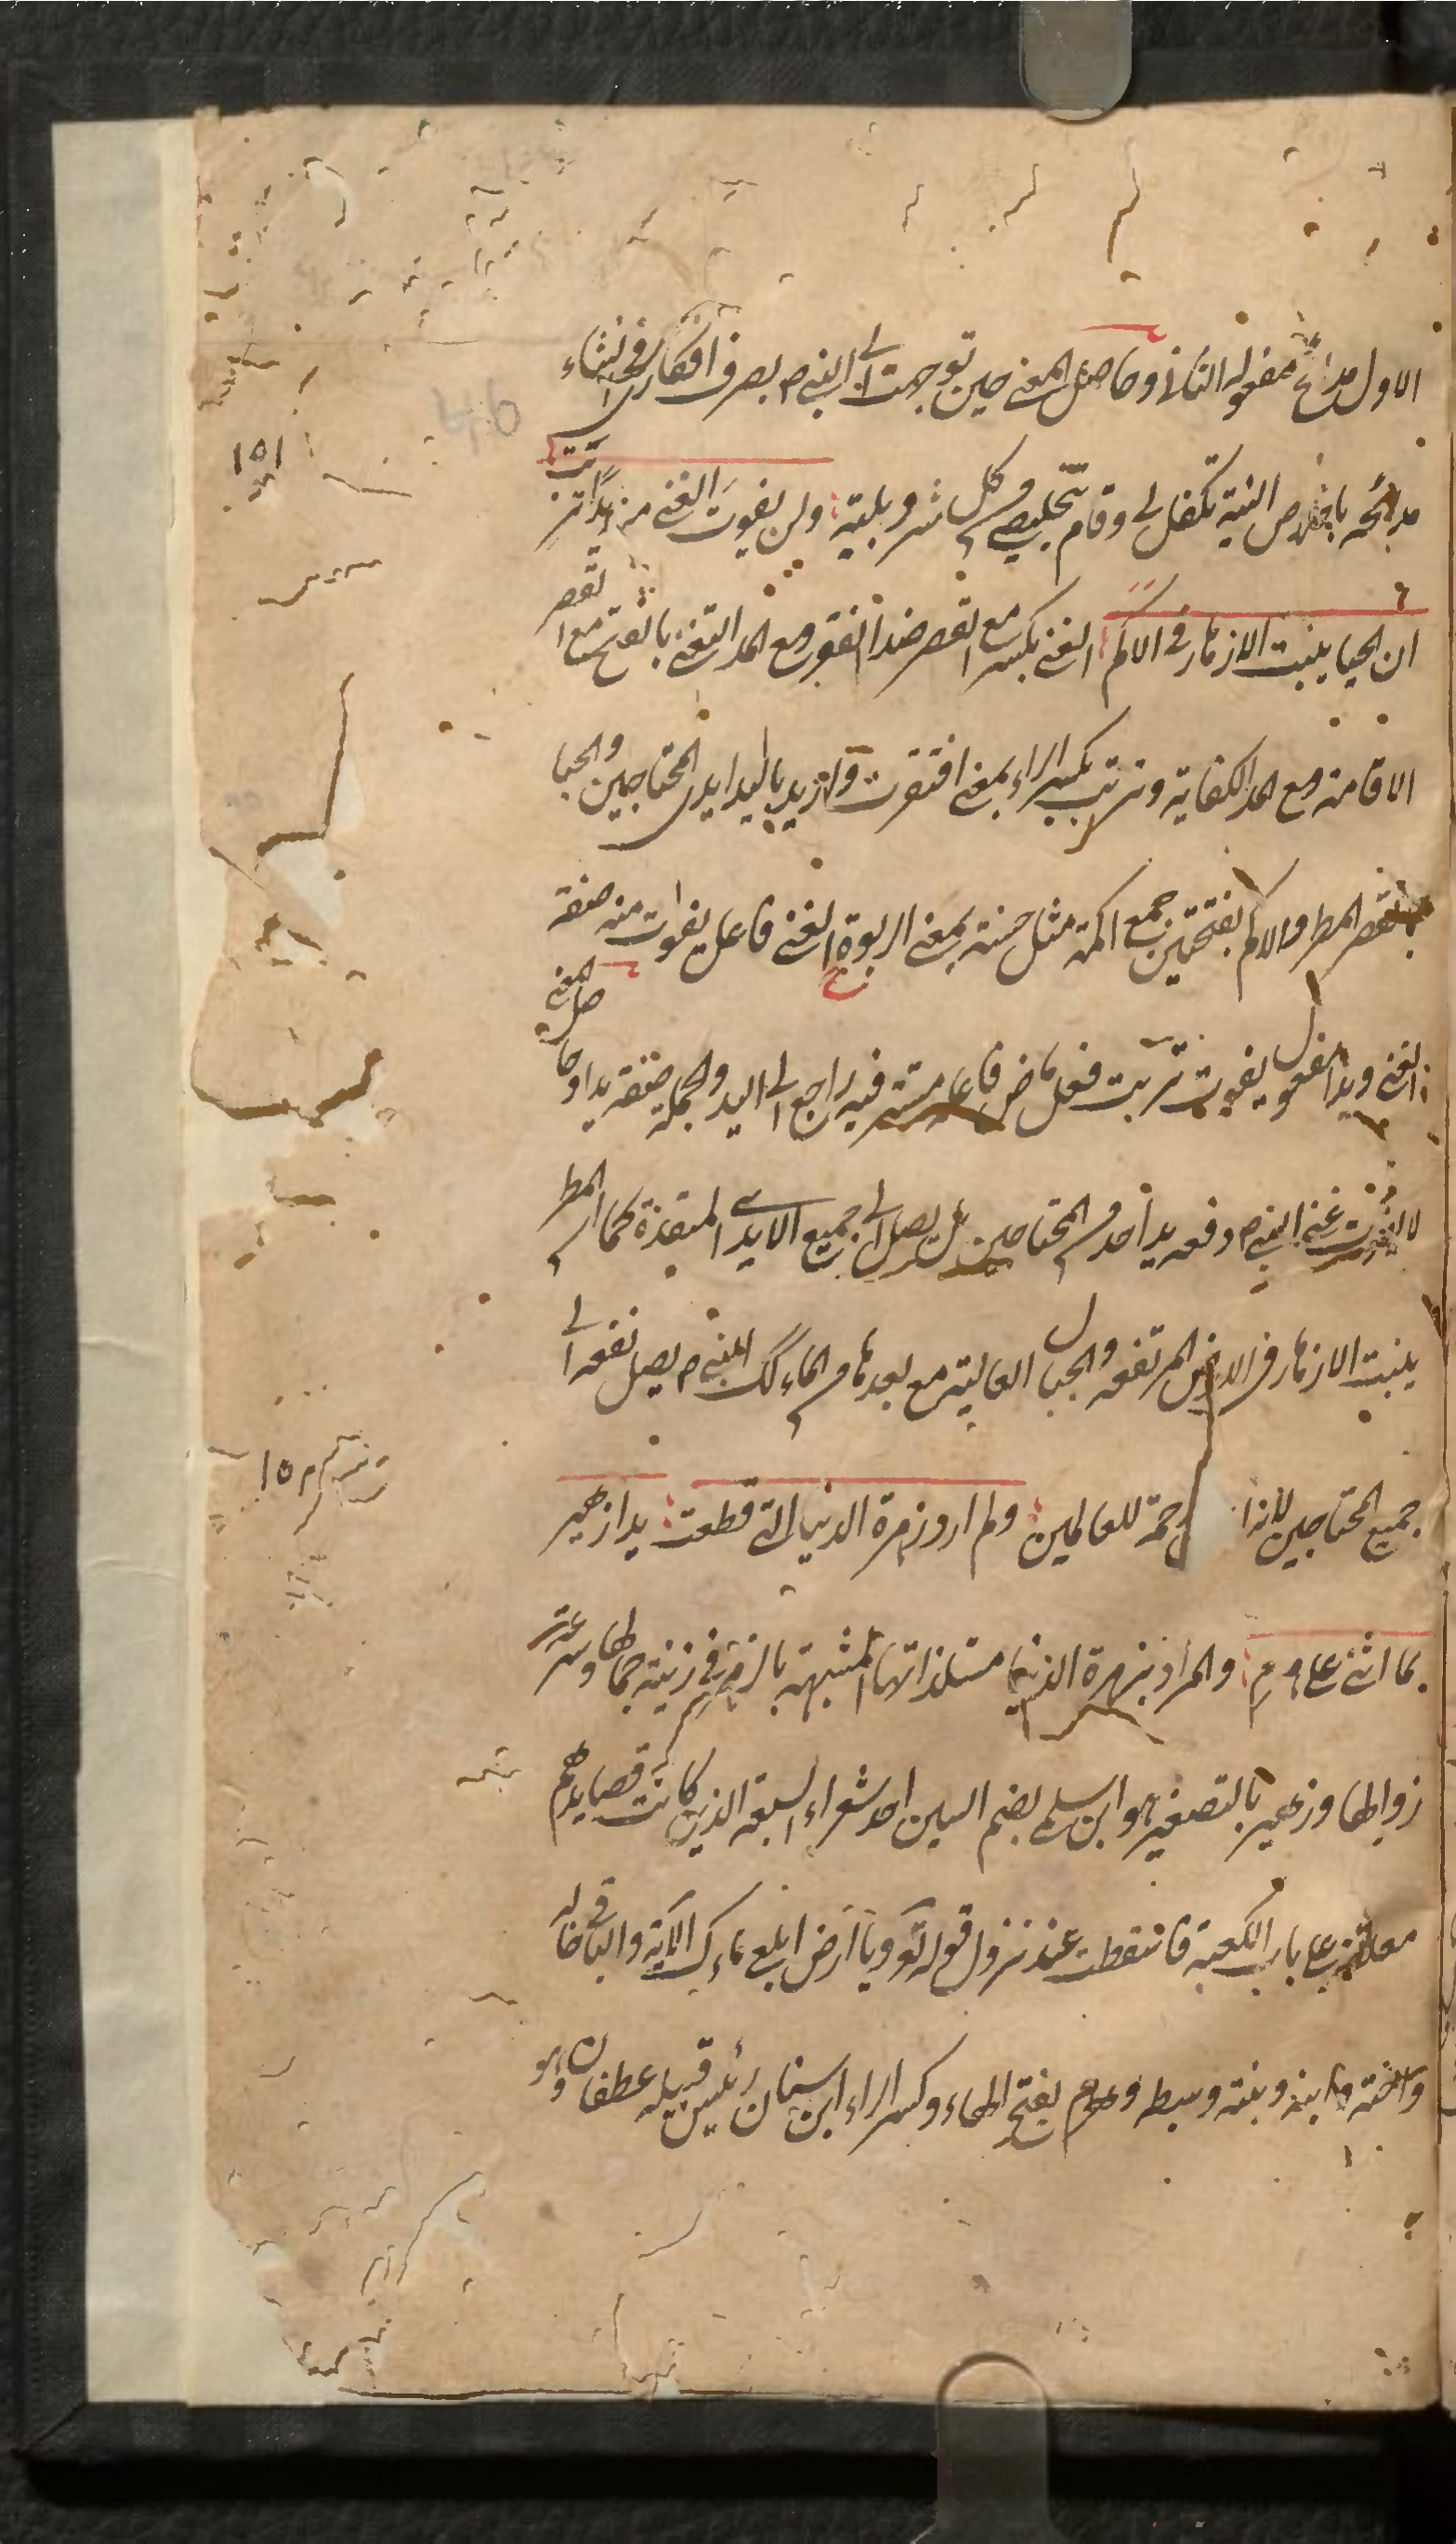 الاول مدائح مفعوله الثاني وحاصل المعنى حين توجهت الى النبي ص بصرف افكارى فى انشاء
مدائحه باخلاص النية تكفل لى وقام بتخليصى من كل شر وبلية ولن يفوت الغنى منه يدا تربت
ان الحيا ينبت الازهار فى الاكم الغنى بكسر مع القصر ضد الفقر ومع المد التغنى بالفتح مع القصر
الاقامة ومع المد الكفاية وتربت بكسر الراء بمعنى افتقرت واريد باليد ايدى المحتاجين والحيا
بالقصر المطر والاكم بفتحتين جمع اكمة مثل حسنة بمعنى الربوة الغنى فاعل يفوت منه صفة
الغنى ويدا مفعول يفوت تربت فعل ماض فاعله مستتر فيه راجع الى اليد والجملة صفة يدا وحاصل المعنى
لا يفوت غنى النبي ص دفعه يد احد من المحتاجين بل يصل الى جميع الايدى كما ان المطر
ينبت الازهار فى الارض المرتفعه والجبال العالية مع بعدها من الماء كك النبي ص يصل نفعه الى
جميع المحتاجين لانه رحمة للعالمين ولم ارد زهرة الدنيا التى قطعت يدا زهير
بما اثنى على هرم والمراد بزهرة الدنيا مستلذاتها المشبهة بالزهر فى زينة جمالها وسرعة
زوالها وزهير بالتصغير هو ابن سلمى بضم السين احد شعراء السبعة الذين كانت قصايدهم
معلقة على باب الكعبة فاسقطت عند نزول قوله تع ويا ارض ابلعى ماءك الاية والباقى خاله
واخته وابنه وبنته وسبطه وهرم بفتح الهاء وكسر الراء ابن سنان رئيس قبيله عطفان وهو
١٥١
١٥٢